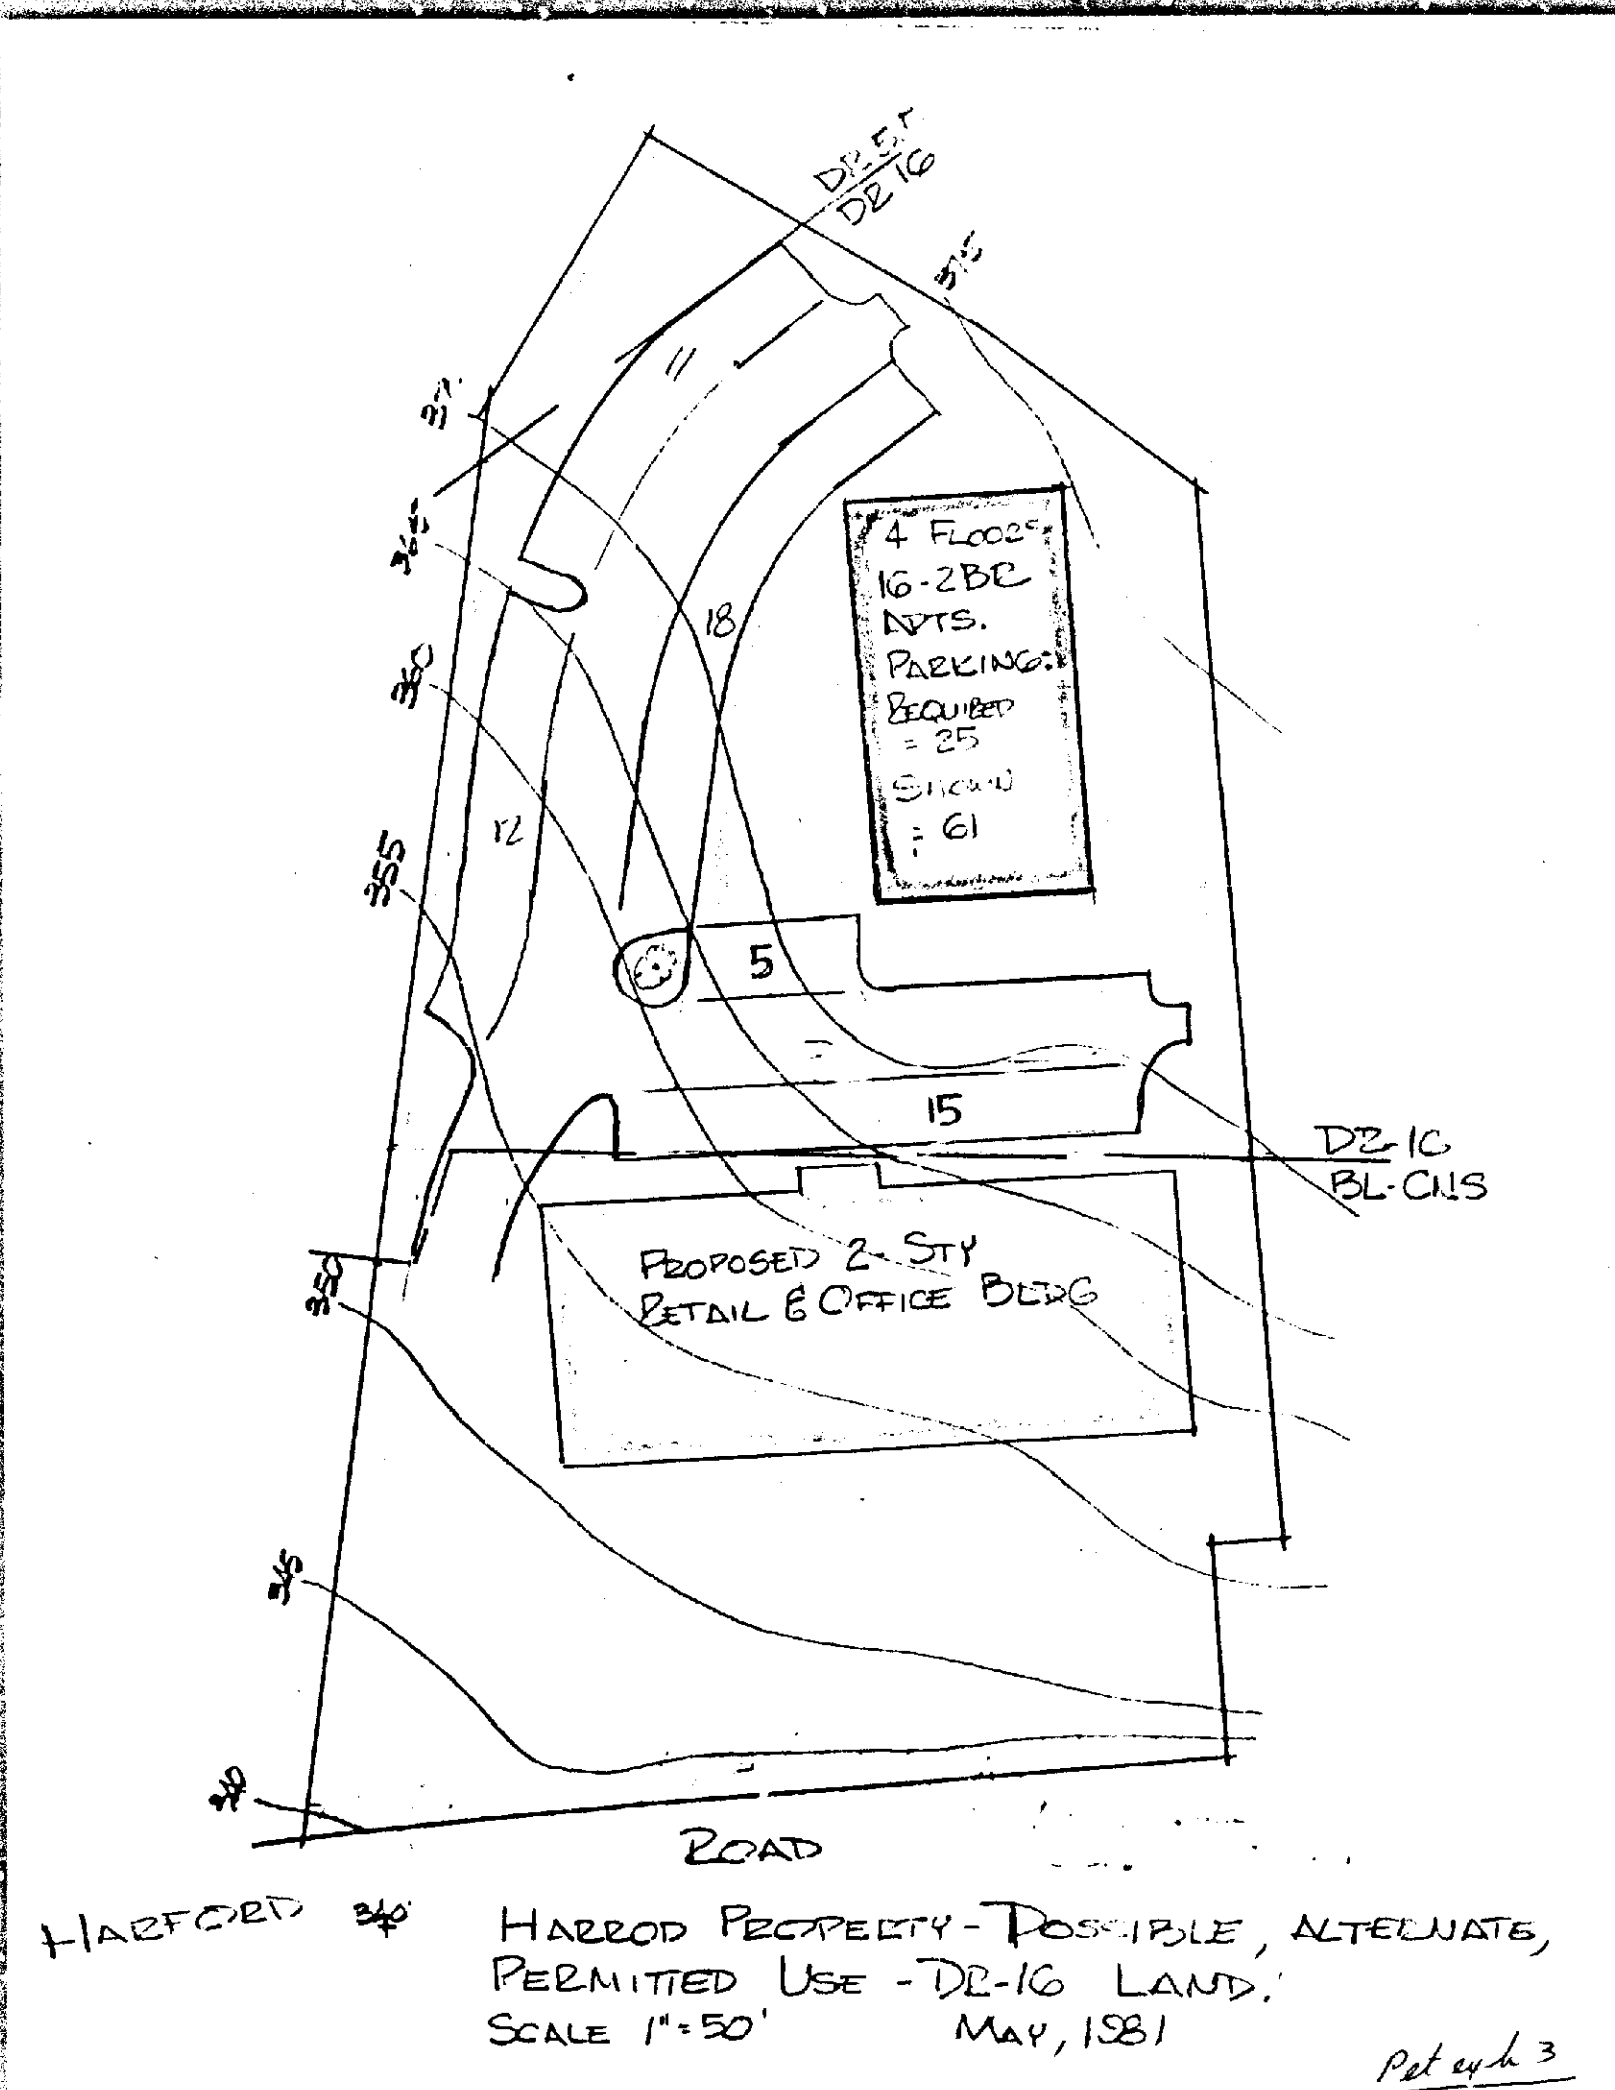 DR 5.5
DR 16
375
11
37
365
360
355
4 FLOORS
16-2BR
APTS.
PARKING:
REQUIRED
= 25
SHOWN
= 61
18
12
5
15
DR-16
BL-CNS
PROPOSED 2-STY
RETAIL & OFFICE BLDG
350
345
340
ROAD
HARFORD 340
HARROD PROPERTY - POSSIBLE, ALTERNATE,
PERMITTED USE - DR-16 LAND.
SCALE 1"=50' MAY, 1981
Pet exh 3